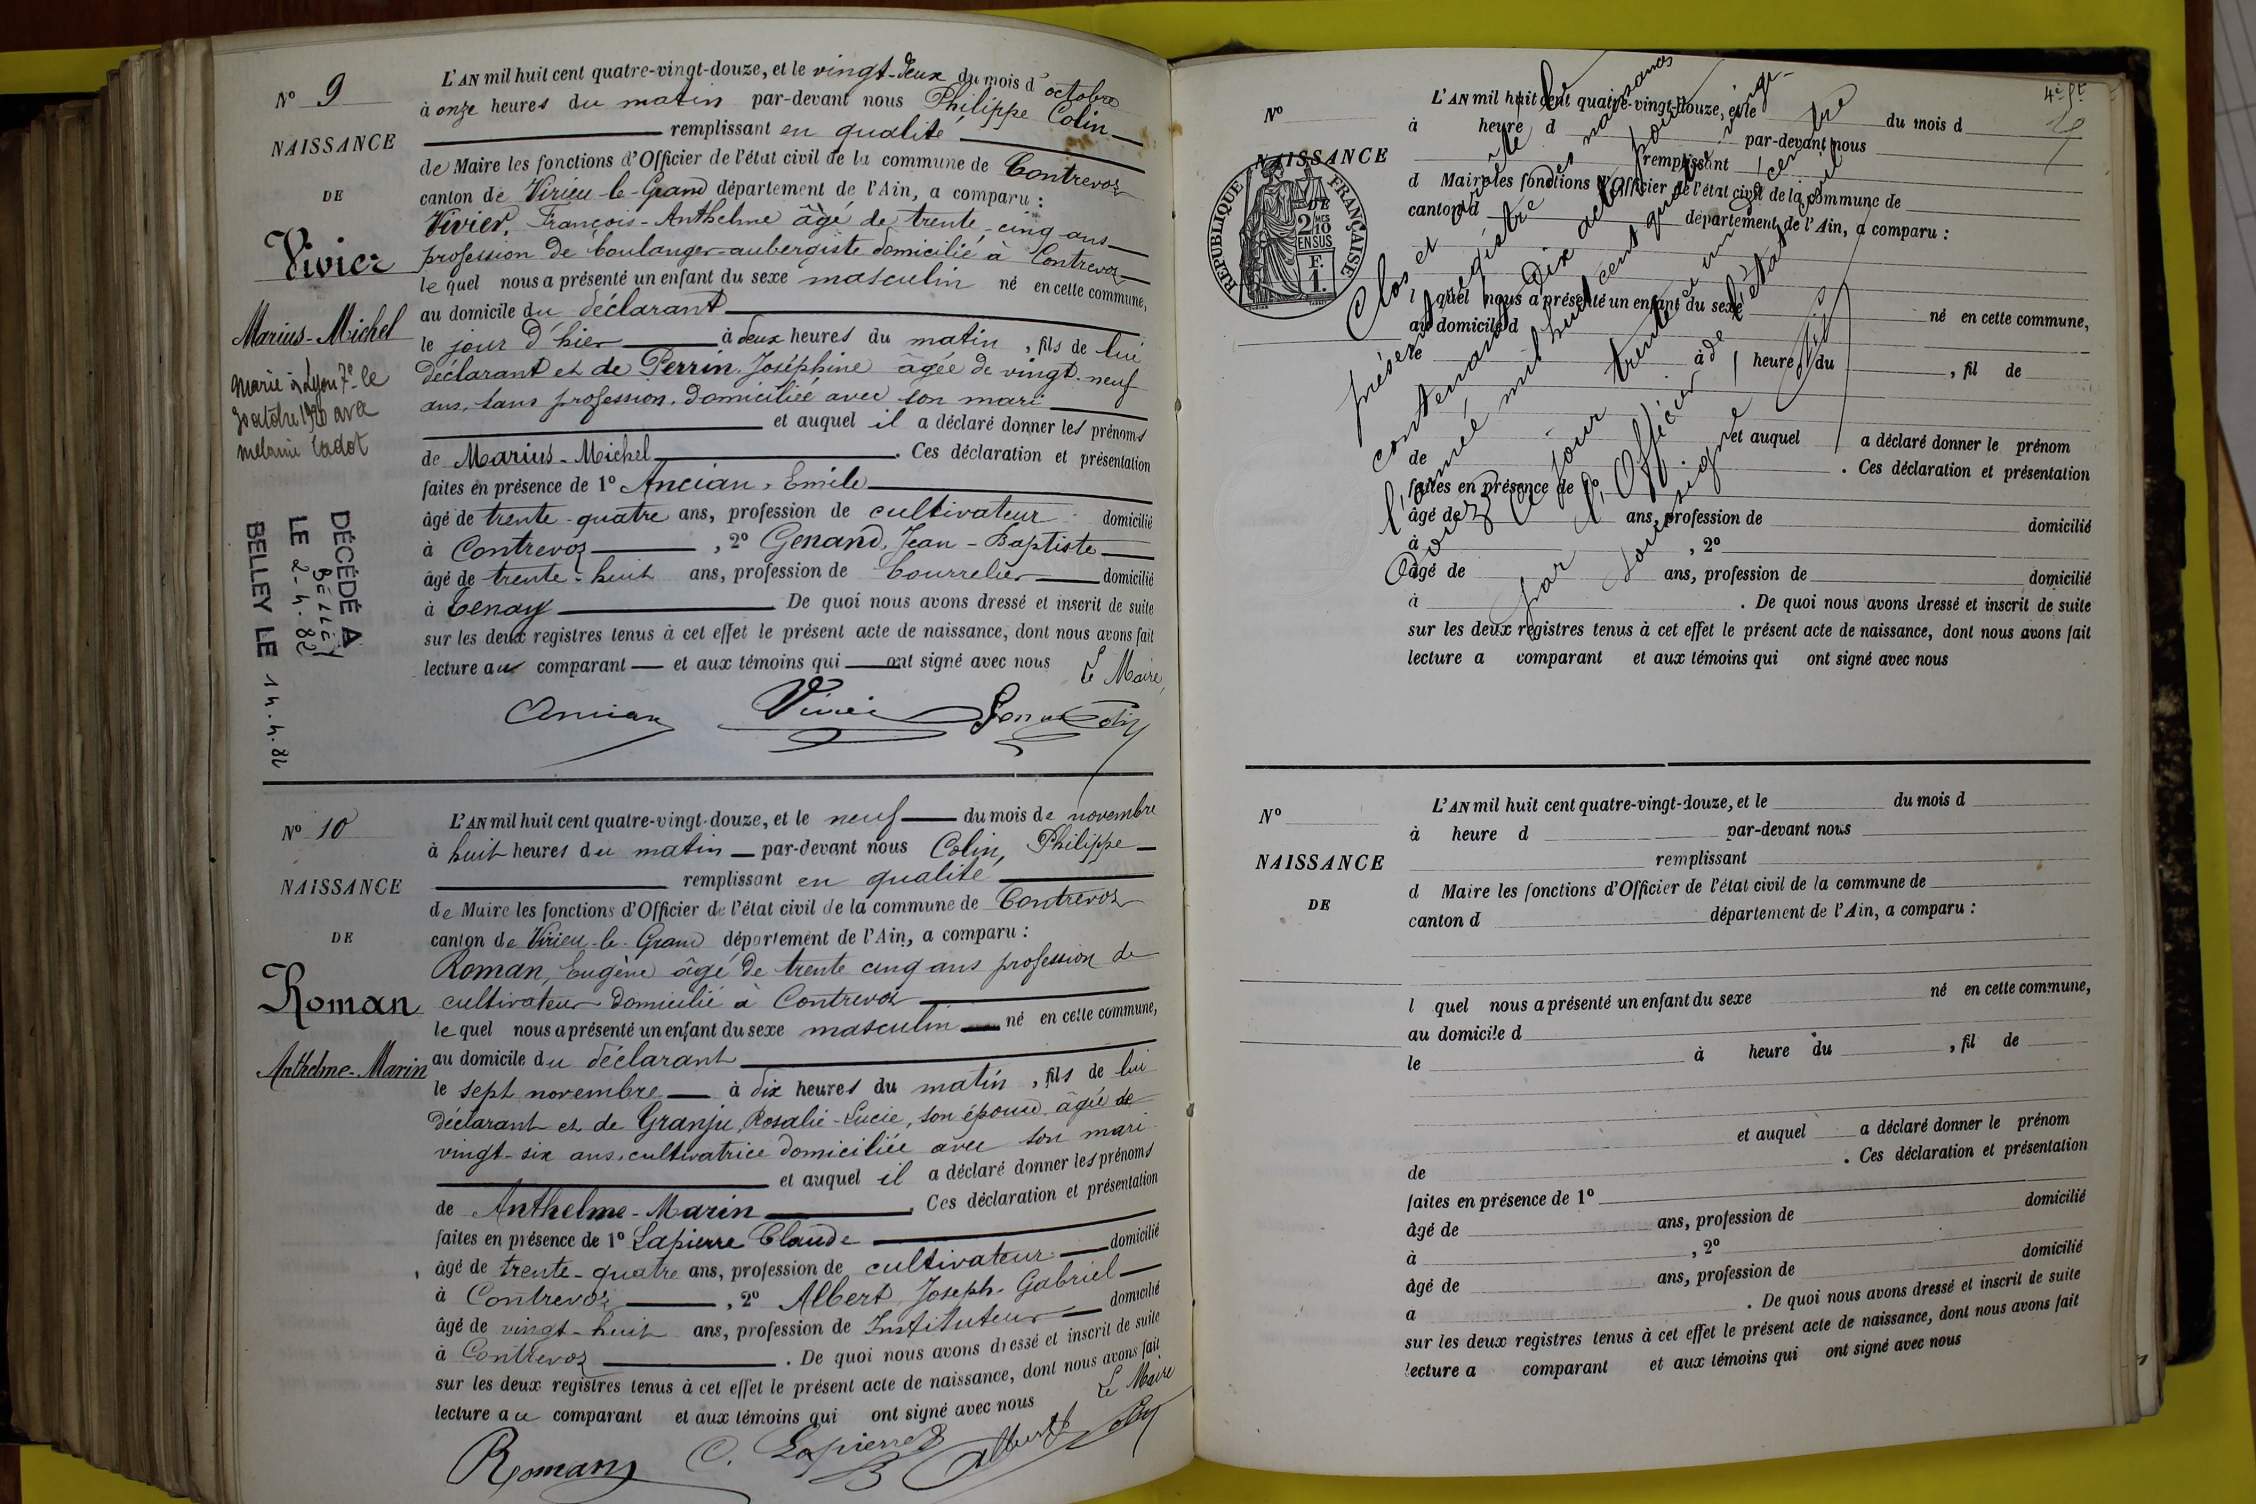 N° 9
NAISSANCE
DE
Vivier
Marius-Michel
Marié à Lyon 7e le
mélanie Cadot
DÉCÉDÉ A
BELLEY
LE 2-4-82
BELLEY LE 14.4.82
L'AN mil huit cent quatre-vingt-douze, et le vingt-deux du mois d'octobre
à onze heures du matin par-devant nous Philippe Colin
remplissant en qualité
de Maire les fonctions d'Officier de l'état civil de la commune de Contrevoz
canton de Virieu-le-Grand département de l'Ain, a comparu :
Vivier, François-Anthelme âgé de trente-cinq ans
profession de boulanger-aubergiste domicilié à Contrevoz
lequel nous a présenté un enfant du sexe masculin né en cette commune,
au domicile du déclarant
le jour d'hier à deux heures du matin, fils de lui
déclarant et de Perrin, Joséphine âgée de vingt-neuf
ans, sans profession, domiciliée avec son mari
et auquel il a déclaré donner les prénoms
de Marius-Michel. Ces déclaration et présentation
faites en présence de 1° Ancian, Emile
âgé de trente-quatre ans, profession de cultivateur domicilié
à Contrevoz, 2° Genand, Jean-Baptiste
âgé de trente-huit ans, profession de bourrelier domicilié
à Tenay De quoi nous avons dressé et inscrit de suite
sur les deux registres tenus à cet effet le présent acte de naissance, dont nous avons fait
lecture au comparant et aux témoins qui ont signé avec nous Le Maire,
Ancian Vivier Colin
N° 10
NAISSANCE
DE
Roman
Anthelme-Marin
L'AN mil huit cent quatre-vingt-douze, et le neuf du mois de novembre
à huit heures du matin par-devant nous Colin, Philippe
remplissant en qualité
de Maire les fonctions d'Officier de l'état civil de la commune de Contrevoz
canton de Virieu-le-Grand département de l'Ain, a comparu :
Roman, Eugène âgé de trente cinq ans profession de
cultivateur domicilié à Contrevoz
lequel nous a présenté un enfant du sexe masculin né en cette commune,
au domicile du déclarant
le sept novembre à dix heures du matin, fils de lui
déclarant et de Granju, Rosalie-Lucie, son épouse âgée de
vingt-six ans, cultivatrice domiciliée avec son mari
et auquel il a déclaré donner les prénoms
de Anthelme-Marin. Ces déclaration et présentation
faites en présence de 1° Lapierre Claude
âgé de trente-quatre ans, profession de cultivateur domicilié
à Contrevoz, 2° Albert Joseph-Gabriel
âgé de vingt-huit ans, profession de Instituteur domicilié
à Contrevoz. De quoi nous avons dressé et inscrit de suite
sur les deux registres tenus à cet effet le présent acte de naissance, dont nous avons fait
lecture au comparant et aux témoins qui ont signé avec nous Le Maire
Roman C. Lapierre Albert Colin
N°
NAISSANCE
RÉPUBLIQUE FRANÇAISE
2 MES
10
EN SUS
F.
1.
L'AN mil huit cent quatre-vingt-douze, et le du mois d
à heure d par-devant nous
remplissant
d Maire les fonctions d'Officier de l'état civil de la commune de
canton d département de l'Ain, a comparu :
l quel nous a présenté un enfant du sexe né en cette commune,
au domicile d
le à heure du , fil de
et auquel a déclaré donner le prénom
de . Ces déclaration et présentation
faites en présence de 1°
âgé de ans, profession de domicilié
à , 2°
âgé de ans, profession de domicilié
à . De quoi nous avons dressé et inscrit de suite
sur les deux registres tenus à cet effet le présent acte de naissance, dont nous avons fait
lecture a comparant et aux témoins qui ont signé avec nous
Clos et arrêté le
présent registre des naissances
contenant dix actes pour
l'année mil huit cent quatre vingt-
douze ce jour trente et un décembre
par l'Officier de l'état civil
soussigné
N°
NAISSANCE
DE
L'AN mil huit cent quatre-vingt-douze, et le du mois d
à heure d par-devant nous
remplissant
d Maire les fonctions d'Officier de l'état civil de la commune de
canton d département de l'Ain, a comparu :
l quel nous a présenté un enfant du sexe né en cette commune,
au domicile d
le à heure du , fil de
et auquel a déclaré donner le prénom
de . Ces déclaration et présentation
faites en présence de 1°
âgé de ans, profession de domicilié
à , 2°
âgé de ans, profession de domicilié
a . De quoi nous avons dressé et inscrit de suite
sur les deux registres tenus à cet effet le présent acte de naissance, dont nous avons fait
lecture a comparant et aux témoins qui ont signé avec nous